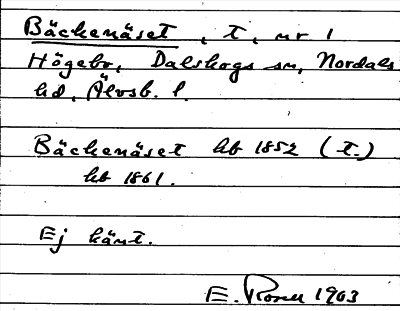 Bäckenäset, t, nr 1
Högebo, Dalskogs sn, Nordals
hd, Älvsb. l.
Bäckenäset hb 1852 (t.)
hb 1861.
Ej känt.
E. 1963